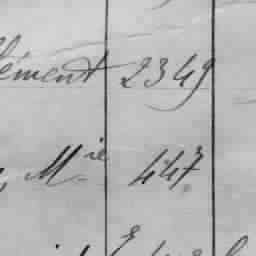 lément 2349
, M.ie 447